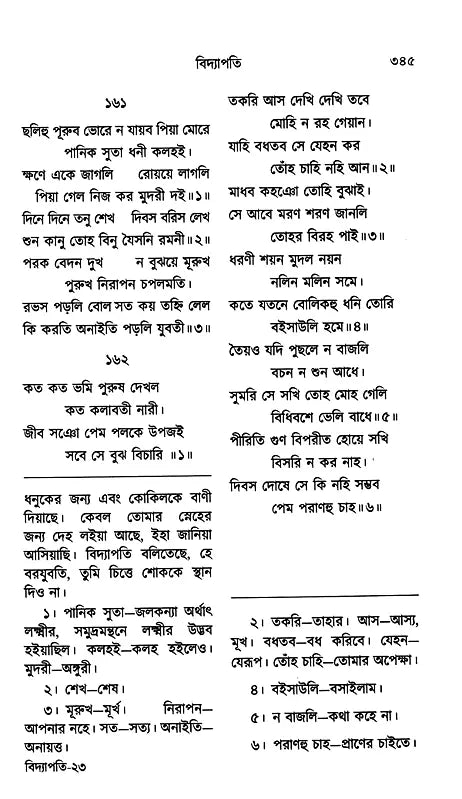 বিদ্যাপতি
৩৪৫
১৬১
ছলিহু পূরুব ভোরে ন যায়ব পিয়া মোরে
পানিক সুতা ধনী কলহই।
ক্ষণে একে জাগলি রোয়য়ে লাগলি
পিয়া গেল নিজ কর মুদরী দই॥১॥
দিনে দিনে তনু শেখ দিবস বরিস লেখ
শুন কানু তোহ বিনু যৈসনি রমনী॥২॥
পরক বেদন দুখ ন বুঝয়ে মূরুখ
পুরুখ নিরাপন চপলমতি।
রভস পড়লি বোল সত কয় তহ্নি লেল
কি করতি অনাইতি পড়লি যুবতী॥৩॥
১৬২
কত কত ভমি পুরুষ দেখল
কত কলাবতী নারী।
জীব সঞো পেম পলকে উপজই
সবে সে বুঝ বিচারি ॥১॥
ধনুকের জন্য এবং কোকিলকে বাণী
দিয়াছে। কেবল তোমার স্নেহের
জন্য দেহ লইয়া আছে, ইহা জানিয়া
আসিয়াছি। বিদ্যাপতি বলিতেছে, হে
বরযুবতি, তুমি চিত্তে শোককে স্থান
দিও না।
১। পানিক সুতা—জলকন্যা অর্থাৎ
লক্ষ্মীর, সমুদ্রমন্থনে লক্ষ্মীর উদ্ভব
হইয়াছিল। কলহই—কলহ হইলেও।
মুদরী—অঙ্গুরী।
২। শেখ—শেষ।
৩। মূরুখ—মূর্খ। নিরাপন—
আপনার নহে। সত—সত্য। অনাইতি—
অনায়ত্ত।
বিদ্যাপতি-২৩
তকরি আস দেখি দেখি তবে
মোহি ন রহ গেয়ান।
যাহি বধতব সে যেহন কর
তোঁহ চাহি নহি আন॥২॥
মাধব কহঞো তোহি বুঝাই।
সে আবে মরণ শরণ জানলি
তোহর বিরহ পাই॥৩॥
ধরণী শয়ন মুদল নয়ন
নলিন মলিন সমে।
কতে যতনে বোলিকহু ধনি তোরি
বইসাউলি হমে॥৪॥
তৈয়ও যদি পুছলে ন বাজলি
বচন ন শুন আধে।
সুমরি সে সখি তোহ মোহ গেলি
বিধিবশে ভেলি বাধে॥৫॥
পীরিতি গুণ বিপরীত হোয়ে সখি
বিসরি ন কর নাহ।
দিবস দোষে সে কি নহি সম্ভব
পেম পরাণহু চাহ॥৬॥
২। তকরি—তাহার। আস—আস্য,
মূখ। বধতব—বধ করিবে। যেহন—
যেরূপ। তোঁহ চাহি—তোমার অপেক্ষা।
৪। বইসাউলি—বসাইলাম।
৫। ন বাজলি—কথা কহে না।
৬। পরাণহু চাহ—প্রাণের চাইতে।